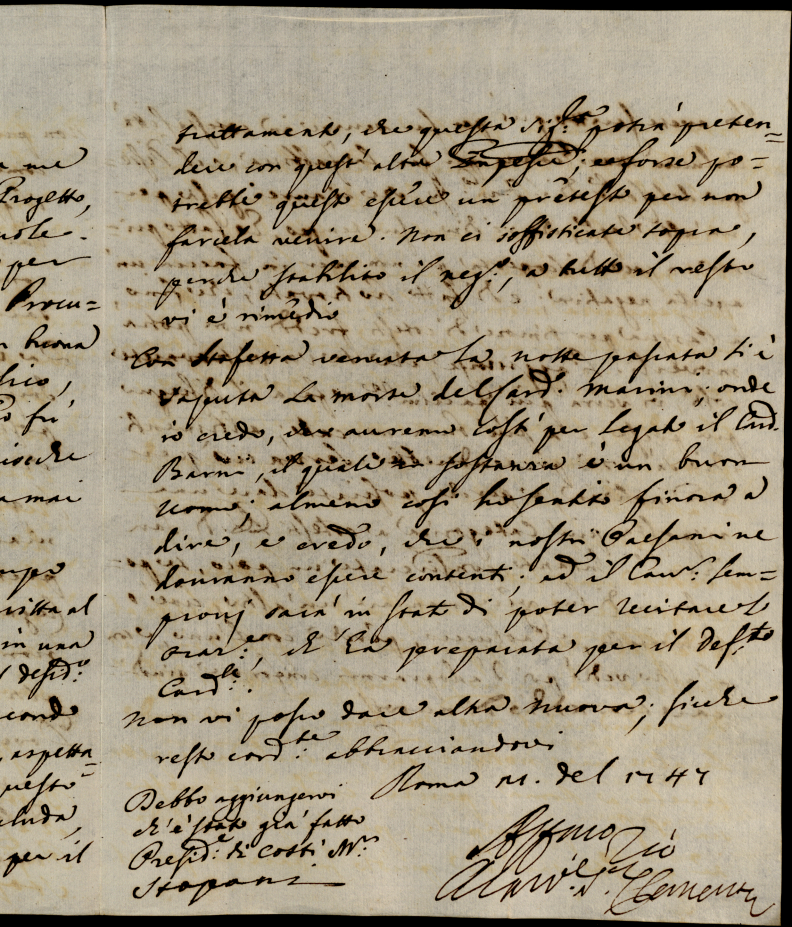 a me
Progetto,
per
Procu=
buona
fù
mai
in una
desid:º
aspetta
questo
cluda,
per il
trattamento, che questa Sig:ra potrà preten=
dere con quest'altra; e forse po=
trebbe questo essere un pretesto per non
farcela venire. Non ci sofisticate sopra,
perche stabilito il neg:º, a tutto il resto
vi è rimedio
Con Staffetta venuta la notte passata si è
saputa la morte del Card. Marini; onde
io credo, che auremo costì per Legato il Card.
Barni, il quale in sostanza è un buon
uomo; almeno così ho sentito finora a
dire, e credo, che i nostri Paesani ne
douranno essere contenti; ed il Cav:r Sem=
pronj sarà in stato di poter recitare l'
oraz:ne, ch'ha preparata per il def:to
Card:le.
Non vi posso dare altra nuova; sicche
resto cord:te abbracciandovi
Roma 11. del 1747
Debbo aggiungervi
ch'è stato già fatto
Presid:e di costì M:r
Stopani
Affmo Zio